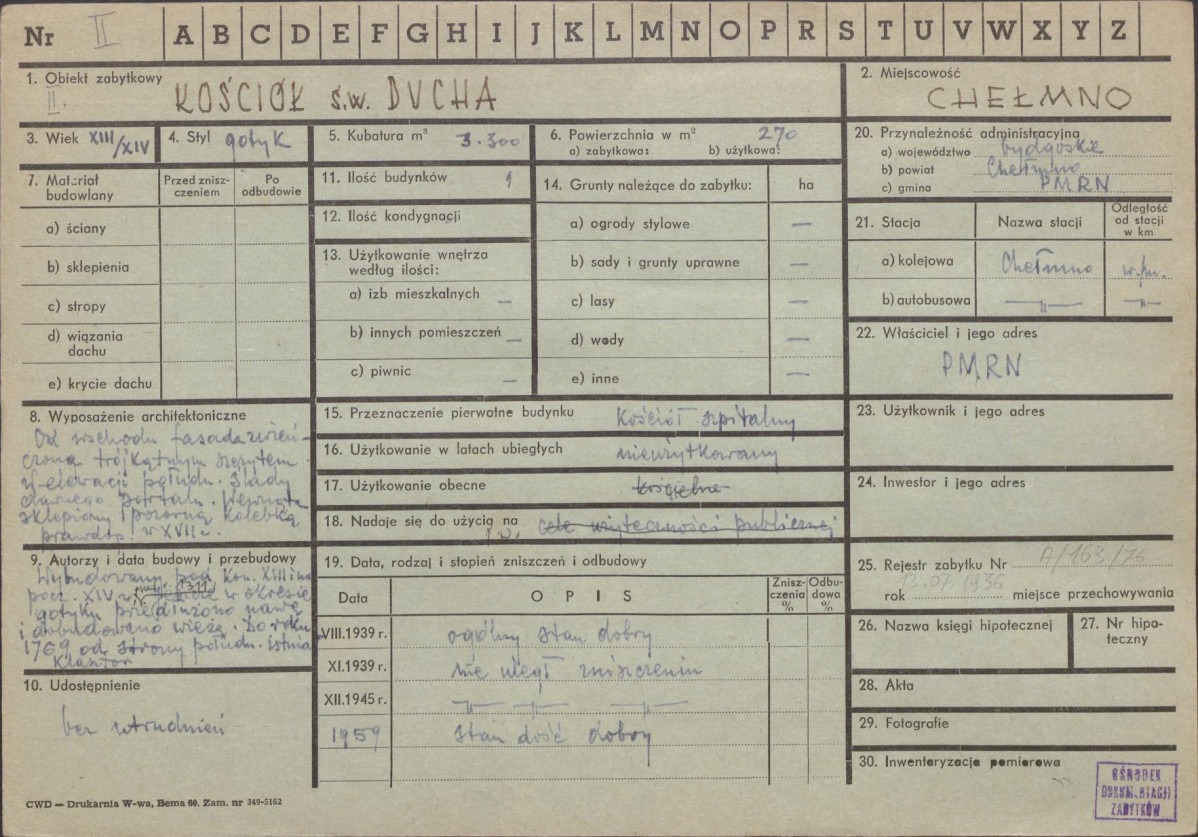 Nr II A B C D E F G H I J K L M N O P R S T U V W X Y Z
1. Obiekt zabytkowy
II. KOŚCIÓŁ św. DUCHA
2. Miejscowość
CHEŁMNO
3. Wiek XIII/XIV
4. Styl gotyk
5. Kubatura m³ 3.300
6. Powierzchnia w m² 270
a) zabytkowa: b) użytkowa:
20. Przynależność administracyjna
a) województwo bydgoskie
b) powiat Chełmno
c) gmina PMRN
7. Materiał budowlany
Przed zniszczeniem
Po odbudowie
a) ściany
b) sklepienia
c) stropy
d) wiązania dachu
e) krycie dachu
11. Ilość budynków 1
12. Ilość kondygnacji
13. Użytkowanie wnętrza
według ilości:
a) izb mieszkalnych —
b) innych pomieszczeń —
c) piwnic —
14. Grunty należące do zabytku: ha
a) ogrody stylowe —
b) sady i grunty uprawne —
c) lasy —
d) wody —
e) inne —
21. Stacja Nazwa stacji Odległość od stacji w km
a) kolejowa Chełmno w/m.
b) autobusowa —"— —"—
22. Właściciel i jego adres
PMRN
8. Wyposażenie architektoniczne
Od wschodu fasada zwień-
czona trójkątnym szczytem.
W elewacji połudn. ślady
dawnego portalu. Wewnątrz
sklepiony pozorną kolebką
prawdop. w XVII w.
15. Przeznaczenie pierwotne budynku Kościół szpitalny
16. Użytkowanie w latach ubiegłych nieużytkowany
17. Użytkowanie obecne kościelne
18. Nadaje się do użycia na cele użyteczności publicznej
23. Użytkownik i jego adres
24. Inwestor i jego adres
9. Autorzy i data budowy i przebudowy
Wybudowany pod kon. XIII i na
pocz. XIV w. 1311 w okresie
gotyku przedłużono nawę
i dobudowano wieżę. Do roku
1769 od strony połudn. istniał
klasztor
19. Data, rodzaj i stopień zniszczeń i odbudowy
Data OPIS Zniszczenia % Odbudowa %
VIII.1939 r. ogólny stan dobry
XI.1939 r. nie uległ zniszczeniu
XII.1945 r. —"— —"— —"—
1959 stan dość dobry
25. Rejestr zabytku Nr A/163/76
rok 13.07.1936 miejsce przechowywania
26. Nazwa księgi hipotecznej
27. Nr hipoteczny
10. Udostępnienie
bez utrudnień
28. Akta
29. Fotografie
30. Inwentaryzacja pomiarowa
OŚRODEK
DOKUMENTACJI
ZABYTKÓW
CWD — Drukarnia W-wa, Bema 60. Zam. nr 349-5162